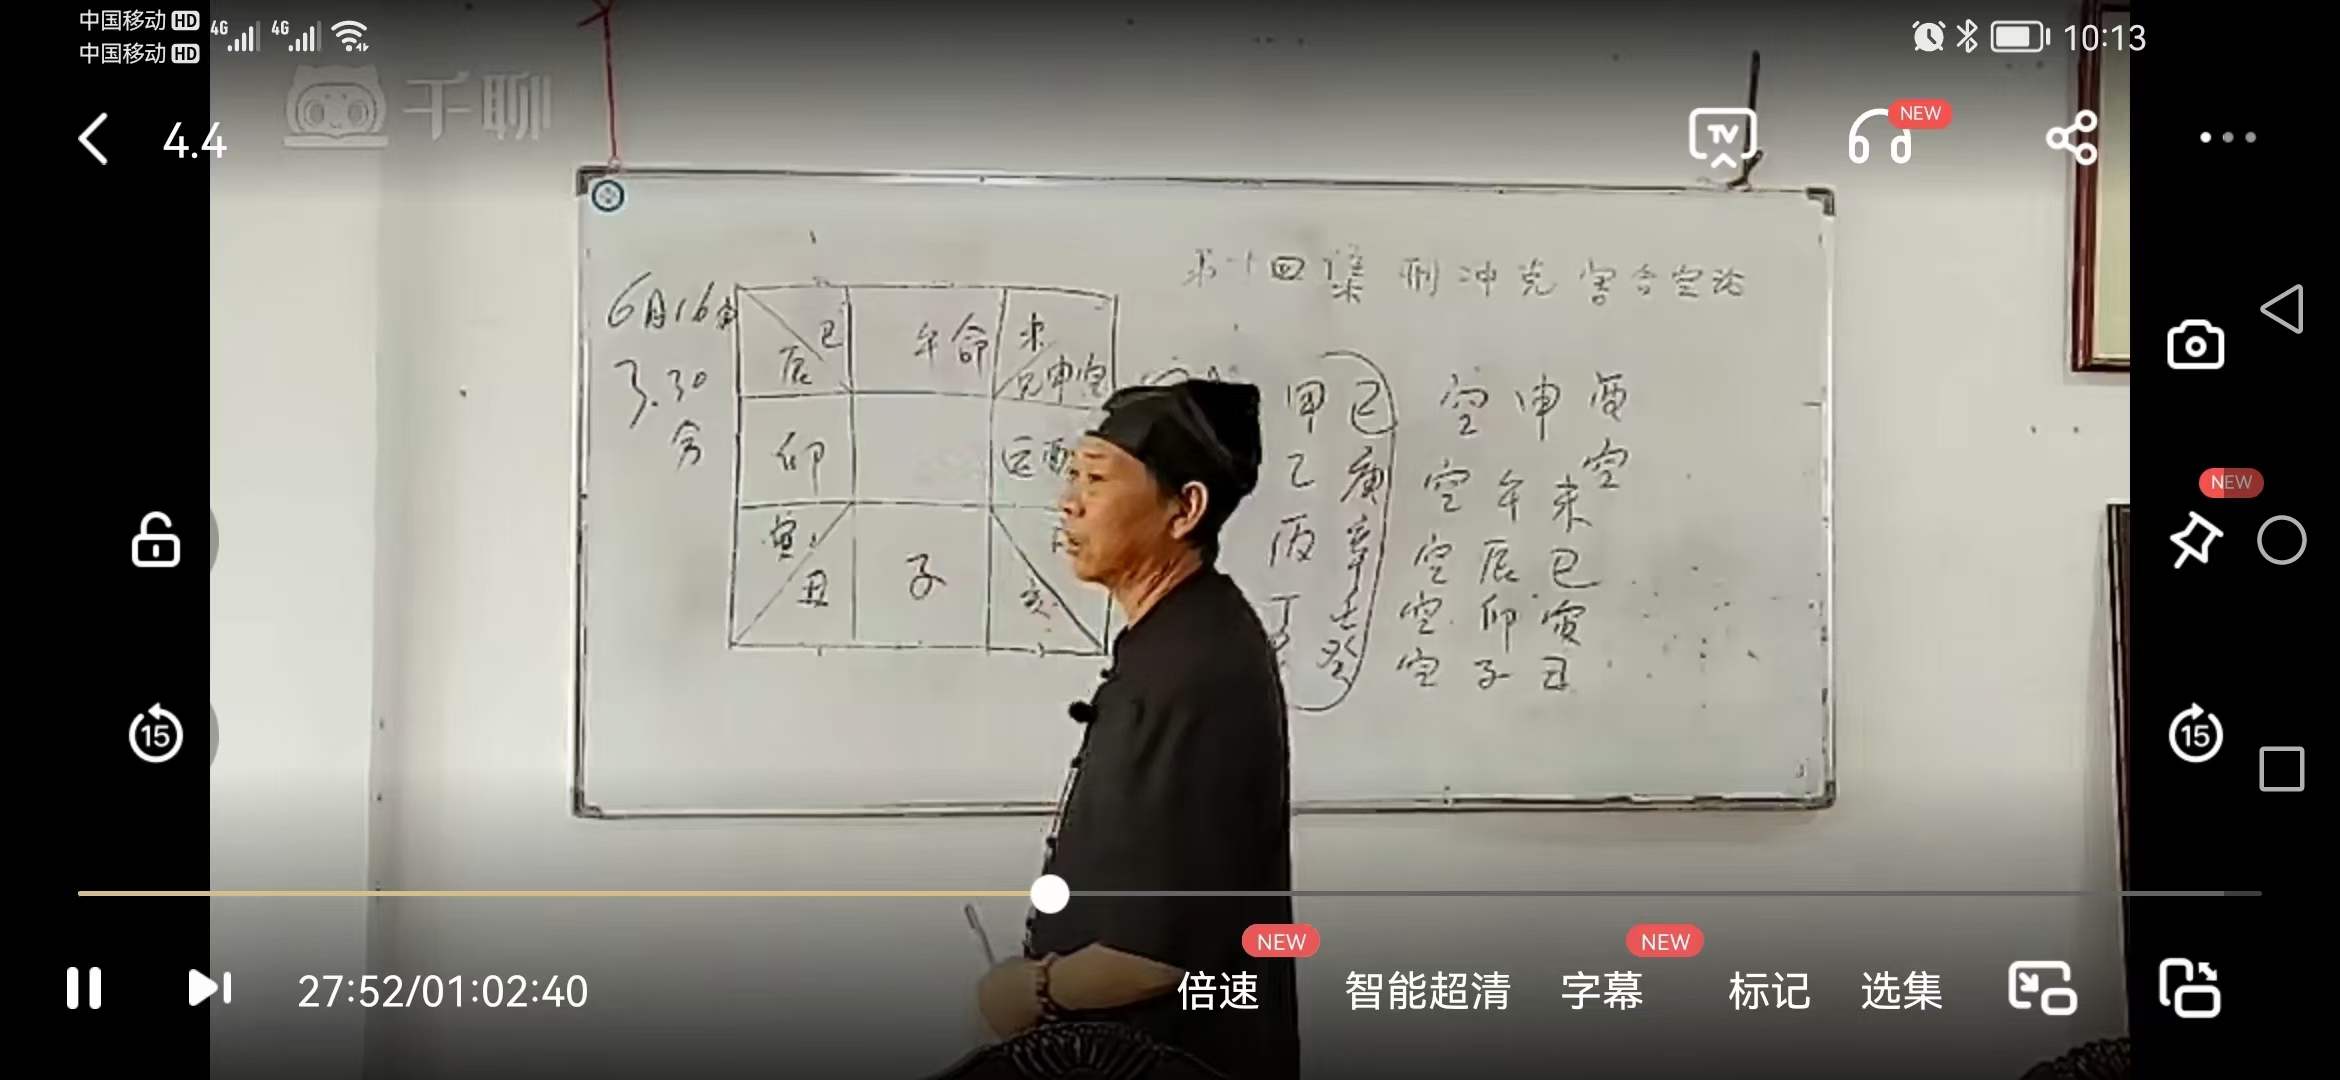 中国移动 HD 4G 4G
中国移动 HD
10:13
千聊
4.4
TV
NEW
第十四集 刑冲克害合空论
6月16
3.30
分
巳
辰
午命
未
申空
卯
酉
寅
丑
子
亥
甲己 空申酉
乙庚 空午未空
丙辛 空辰巳
丁壬 空卯寅
癸 空子丑
NEW
15
15
NEW
NEW
27:52/01:02:40
倍速
智能超清
字幕
标记
选集